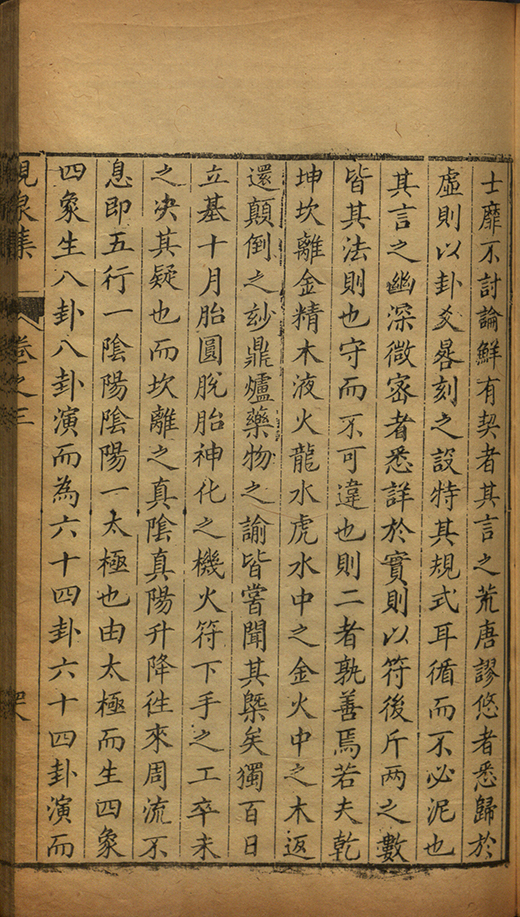 士靡不討論鮮有契者其言之荒唐謬悠者悉歸於
虛則以卦爻晷刻之設特其規式耳循而不必泥也
其言之幽深微密者悉詳於實則以符後斤两之數
皆其法則也守而不可違也則二者孰善焉若夫乾
坤坎離金精木液火龍水虎水中之金火中之木返
還顛倒之玅鼎爐藥物之諭皆嘗聞其槩矣獨百日
立基十月胎圓脫胎神化之機火符下手之工卒未
之决其疑也而坎離之真陰真陽升降徃來周流不
息即五行一陰陽陰陽一太極也由太極而生四象
四象生八卦八卦演而為六十四卦六十四卦演而
峴泉集 卷之三